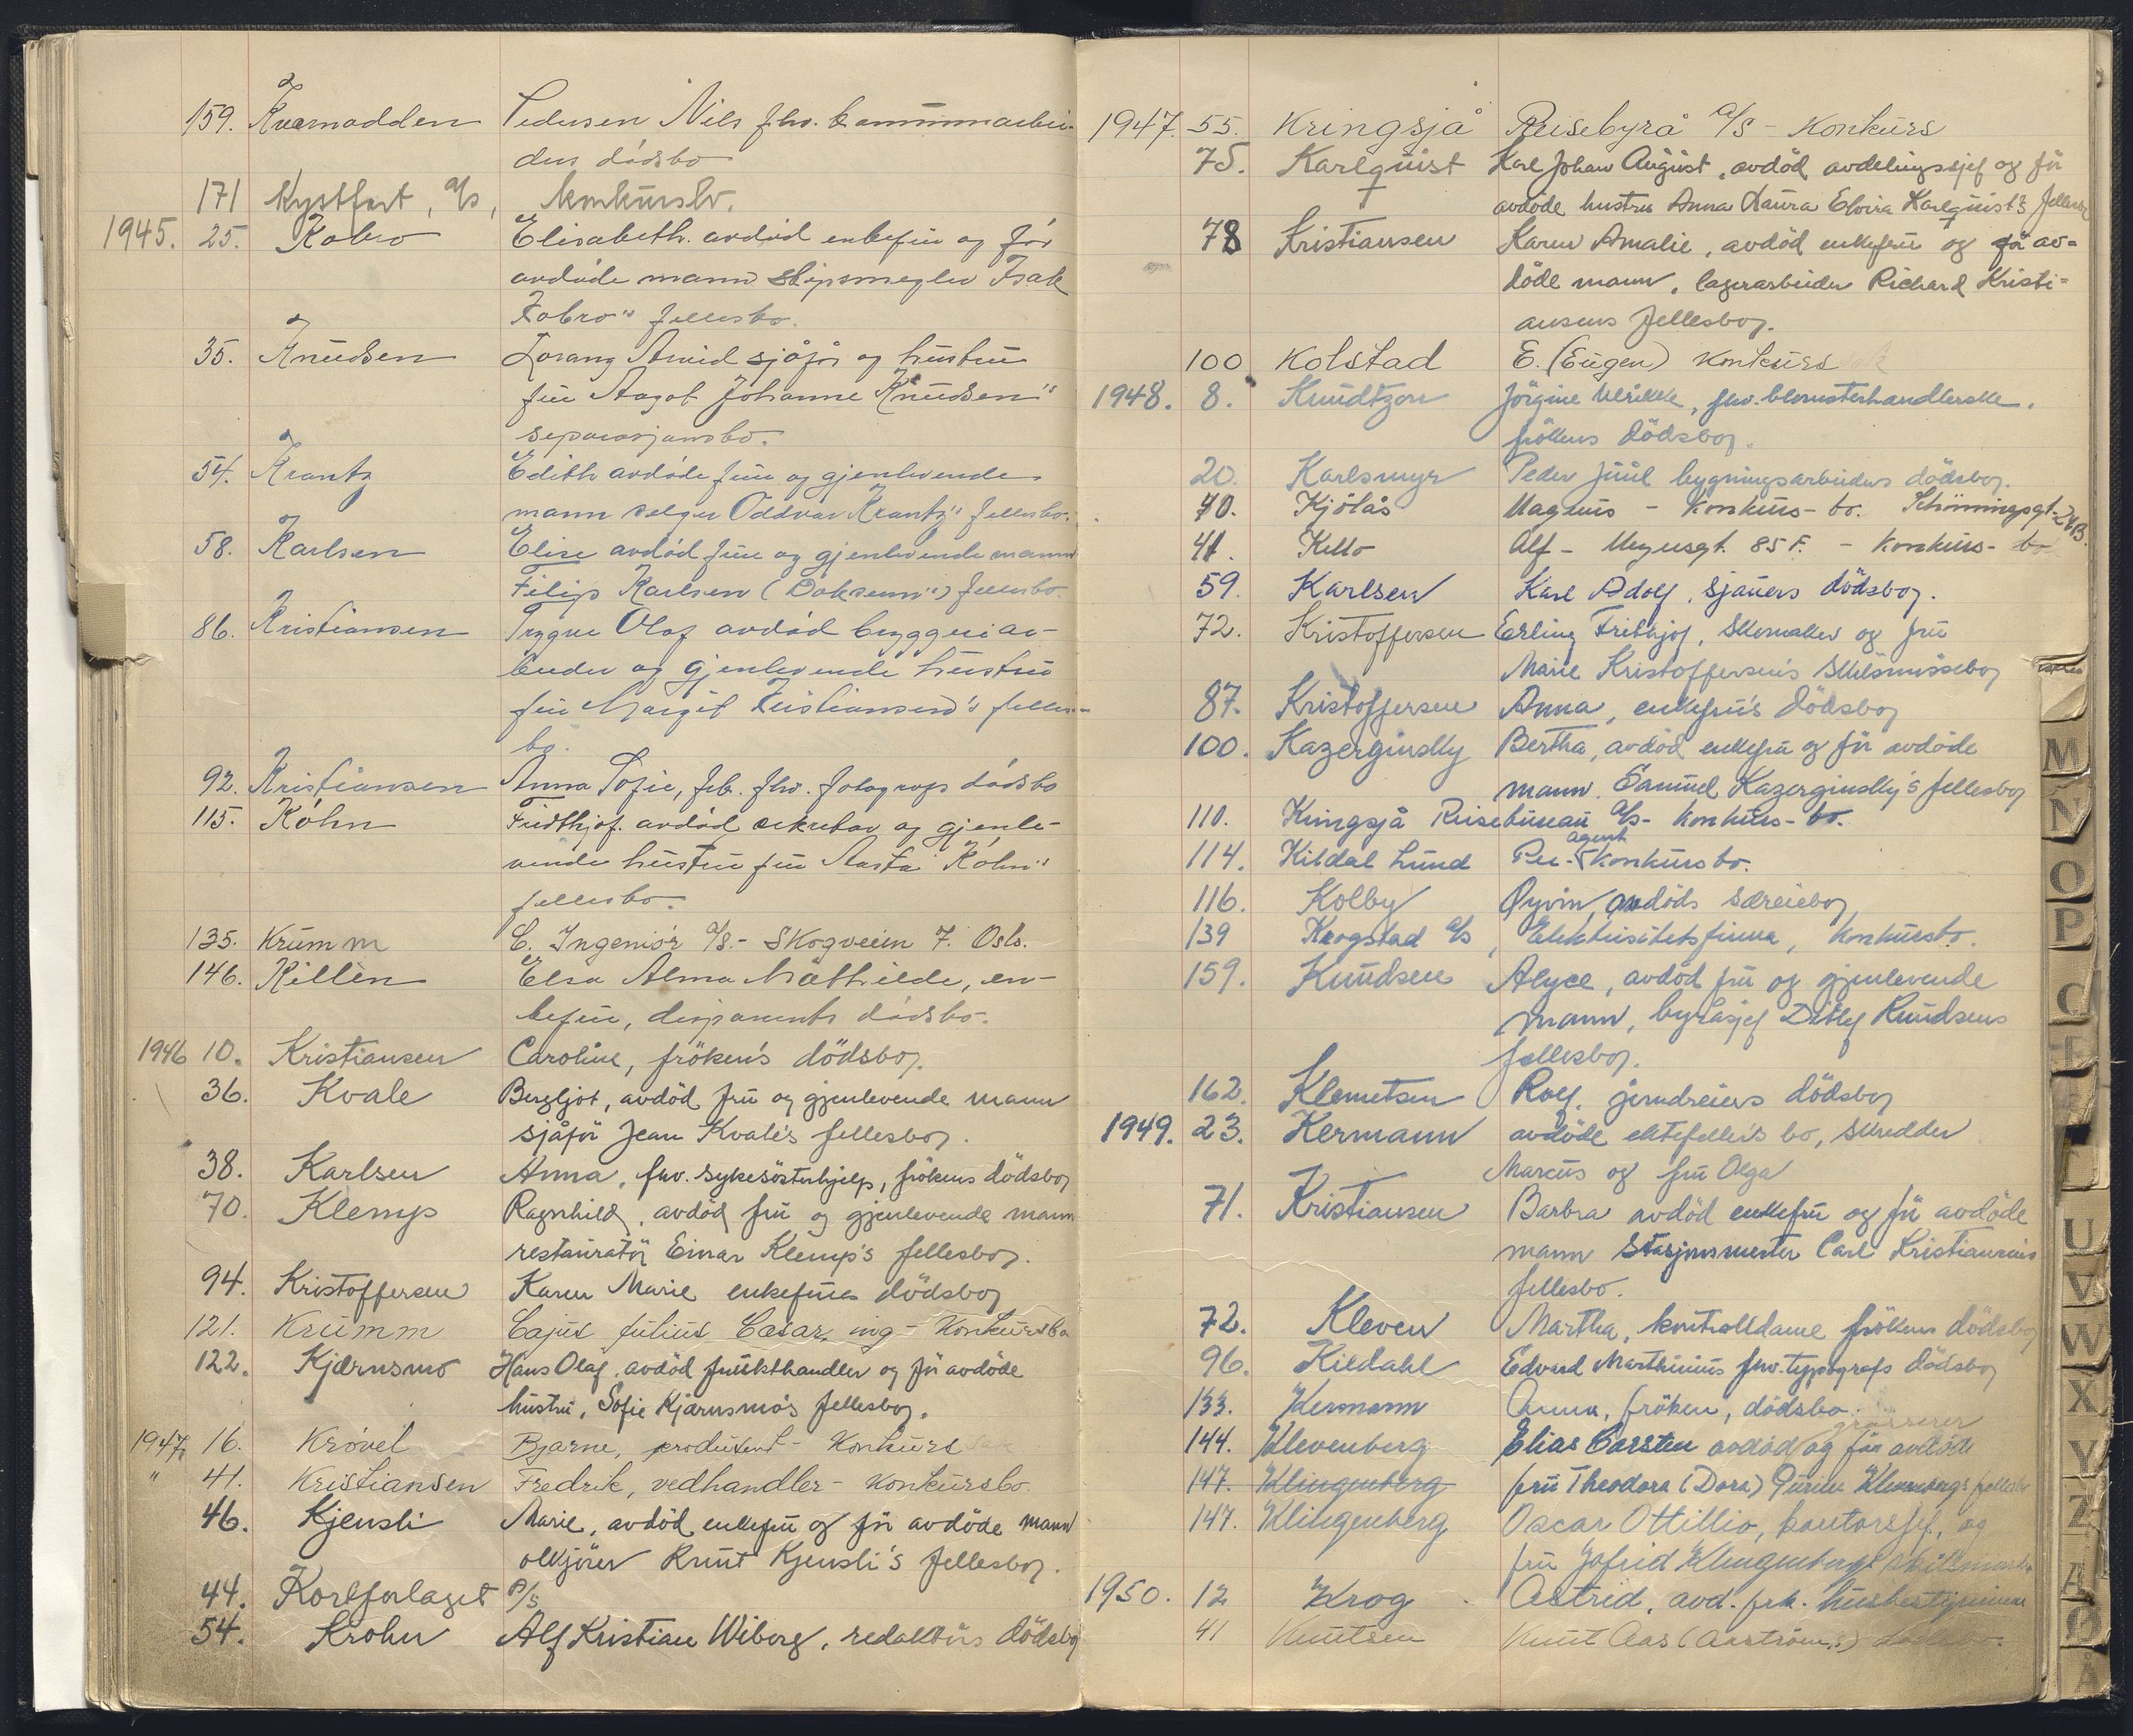 159. Kvernodden Pedersen Nils fhv. kommunearbei-
ders dødsbo
171 Kystfart, A/S, konkursbo.
1945. 25. Kobro Elisabeth. avdød enkefru og før
avdøde mann skipsmegler Isak
Kobro's fellesbo.
35. Knudsen Lorang Arvid sjåfør og hustru
fru Aagot Johanne Knudsen's
separasjonsbo.
54. Krantz Edith avdøde frue og gjenlevende
mann selger Oddvar Krantz's fellesbo.
58. Karlsen Elise avdød frue og gjenlevende mann
Filip Karlsen fellesbo.
86. Kristiansen Trygve Olaf avdød bryggeriar-
beider og gjenlevende hustru
fru Margit Kristiansen's felles-
bo.
92. Kristiansen Anna Sofie, frk. fhv. fotografs dødsbo
115. Köhn Fridthjof. avdød sekretær og gjenle-
vende hustru fru Aasta Köhn's
fellesbo.
135. Krumm C. Ingeniör A/S.- Skogveien 7. Oslo.
146. Killen Elsa Alma Mathilde, en-
kefru, disponents dødsbo.
1946 10. Kristiansen Caroline, fröken's dödsbo.
36. Kvale Bergljot, avdöd fru og gjenlevende mann
sjåför Jean Kvale's fellesbo.
38. Karlsen Anna, fhv. sykesösterhjelp, frökens dödsbo
70. Klemp Ragnhild, avdöd fru og gjenlevende mann
restauratör Einar Klemp's fellesbo.
94. Kristoffersen Karen Marie enkefrues dödsbo
121. Krumm Cajus Julius Cæsar, ing - Konkursbo
122. Kjærnsmo Hans Olaf, avdöd frukthandler og för avdöde
hustru, Sofie Kjærnsmo's fellesbo.
1947 16. Krövel Bjarne, produsent - Konkurs
" 41. Kristiansen Fredrik, vedhandler - Konkursbo.
46. Kjensli Marie, avdöd enkefru og för avdöde mann
ölkjörer Knut Kjensli's fellesbo.
44. Kortforlaget A/S
54. Krohn Alf Kristian Wiborg, redaktörs dödsbo
1947. 55. Kringsjå Reisebyrå A/S - Konkurs
75. Karlquist Karl Johan August, avdöd avdelingssjef og för
avdöde hustru Anna Laura Elvira Karlquist's fellesbo
78 Kristiansen Karen Amalie, avdöd enkefru og för av-
döde mann, lagerarbeider Richard Kristi-
ansens fellesbo.
100 Kolstad E. (Eugen) Konkurs
1948. 8. Knudtzon Jörgine Ulrikke, fhv. blomsterhandlerske,
frökens dödsbo.
20. Karlsmyr Peder Juul bygningsarbeiders dödsbo.
40. Kjölås Magnus - Konkurs-bo. Schönningsgt.
41. Kello Alf - Meyersgt. 85 F. - Konkurs-bo
59. Karlsen Karl Adolf, sjauers dödsbo.
72. Kristoffersen Erling Frithjof, skomaker og fru
Marie Kristoffersen's skilsmissebo
87. Kristoffersen Anna, enkefru's dödsbo
100. Kazerginsky Bertha, avdöd enkefru og för avdöde
mann, Samuel Kazerginsky's fellesbo
110. Kringsjå Reisebureau A/S - konkurs-bo.
agent
114. Kildal Lund Per - konkursbo.
116. Kolby Øyvin, avdöds særeiebo
139 Krogstad A/S, Elektrisitetsfirma, konkursbo.
159. Knudsen Alyce, avdöd fru og gjenlevende
mann, byråsjef Ditlef Knudsens
fellesbo.
162. Klemetsen Rolf, gårdeiers dödsbo
1949. 23. Kermann avdöde ektefelle's bo, skredder
Marcus og fru Olga
71. Kristiansen Barbra avdöd enkefru og för avdöde
mann stasjonsmester Carl Kristiansens
fellesbo.
72. Kleven Martha, kontrolldame frökens dödsbo
96. Kildahl Edvard Marthinius fhv. typografs dödsbo
133. Kermann Anna, fröken, dödsbo.
grosserer
144. Klevenberg Elias Carsten avdöd og för avdöde
147. Klingenberg fru Theodora (Dora) Klevenbergs fellesbo
147. Klingenberg Oscar Ottillio, kontorsjef, og
fru Jofrid Klingenbergs skilsmissebo
1950. 12 Krog Astrid, avd. frk. husbestyrerinne
41 Knutsen Knut Aas (Aaström's) dödsbo.
M
N
O
P
U
V
W
X
Y
Z
Æ
Ø
Å